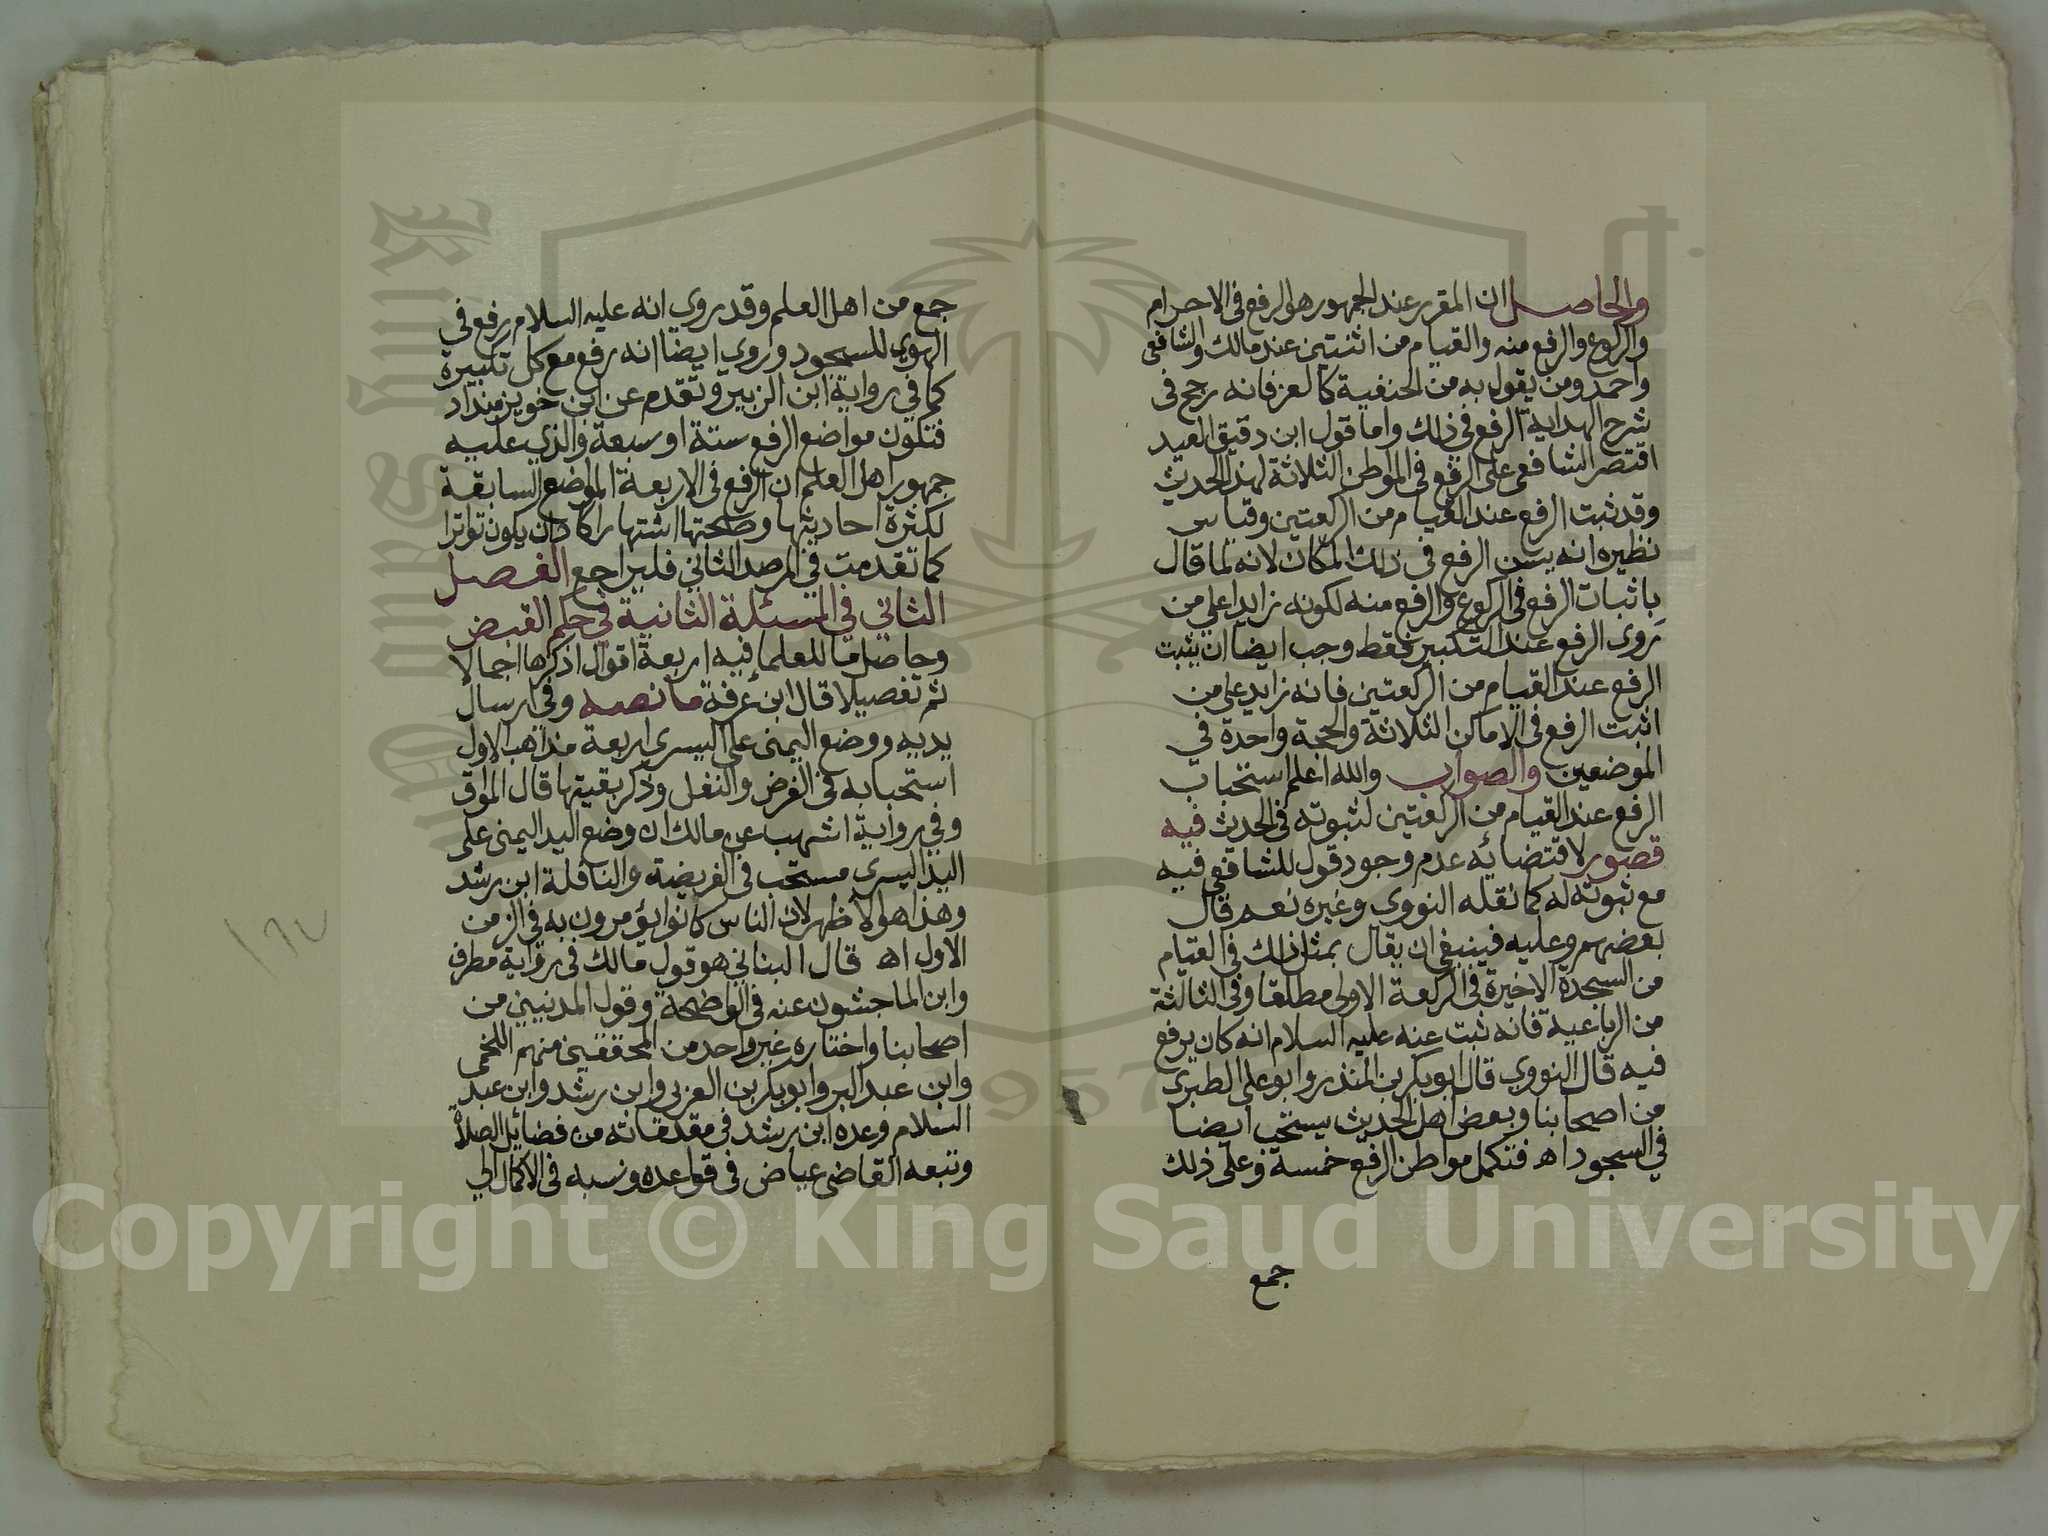 والحاصل ان المقرر عند الجمهور هو الرفع في الاحرام
والركوع والرفع منه والقيام من اثنتين عند مالك والشافعي
واحمد ومن يقول به من الحنفية كالعز فانه رجح في
شرح الهداية الرفع في ذلك واما قول ابن دقيق العيد
اقتصر الشافعي على الرفع في المواطن الثلاثة لهذا الحديث
وقد ثبت الرفع عند القيام من الركعتين وقياس
نظيره انه يسن الرفع في ذلك المكان لانه لما قال
باثبات الرفع في الركوع والرفع منه لكونه زايدا على من
روى الرفع عند التكبير فقط وجب ايضا ان يثبت
الرفع عند القيام من الركعتين فانه زايد على من
اثبت الرفع في الاماكن الثلاثة والحجة واحدة في
الموضعين والصواب والله اعلم استحباب
الرفع عند القيام من الركعتين لثبوته في الحديث فيه
قصور لاقتضائه عدم وجود قول للشافعي فيه
مع ثبوته له كما نقله النووي وغيره نعم قال
بعضهم وعليه فينبغي ان يقال بمثل ذلك في القيام
من السجدة الاخيرة في الركعة الاولى مطلقا وفي الثالثة
من الرباعية فانه ثبت عنه عليه السلام انه كان يرفع
فيه قال النووي قال ابو بكر بن المنذر وابو علي الطبري
من اصحابنا وبعض اهل الحديث يستحب ايضا
في السجود اه فتكمل مواطن الرفع خمسة وعلى ذلك
جمع
جمع من اهل العلم وقد روي انه عليه السلام رفع في
الهوي للسجود وروي ايضا انه رفع مع كل تكبيرة
كما في رواية ابن الزبير وتقدم عن ابن خويزمنداد
فتكون مواضع الرفع ستة او سبعة والذي عليه
جمهور اهل العلم ان الرفع في الاربعة المواضع السابقة
لكثرة احاديثها وصحتها اشتهارا كاد ان يكون تواترا
كما تقدمت في المرصد الثاني فليراجع الفصل
الثاني في المسئلة الثانية في حكم القبض
وحاصل ما للعلما فيه اربعة اقوال اذكرها اجمالا
ثم تفصيلا قال ابن عرفة ما نصه وفي ارسال
يديه ووضع اليمنى على اليسرى اربعة مذاهب الاول
استحبابه في الفرض والنفل وذكر بقيتها قال المواق
وفي رواية اشهب عن مالك ان وضع اليد اليمنى على
اليد اليسرى مستحب في الفريضة والنافلة ابن رشد
وهذا هو الاظهر لان الناس كانوا يؤمرون به في الزمن
الاول اه قال البناني هو قول مالك في رواية مطرف
وابن الماجشون عنه في الواضحة وقول المدنيين من
اصحابنا واختاره غير واحد من المحققين منهم اللخمي
وابن عبد البر وابو بكر بن العربي وابن رشد وابن عبد
السلام وعده ابن رشد في مقدماته من فضائل الصلاة
وتبعه القاضي عياض في قواعده ونسبه في الاكمال الى
King Saud
1957
Copyright © King Saud University